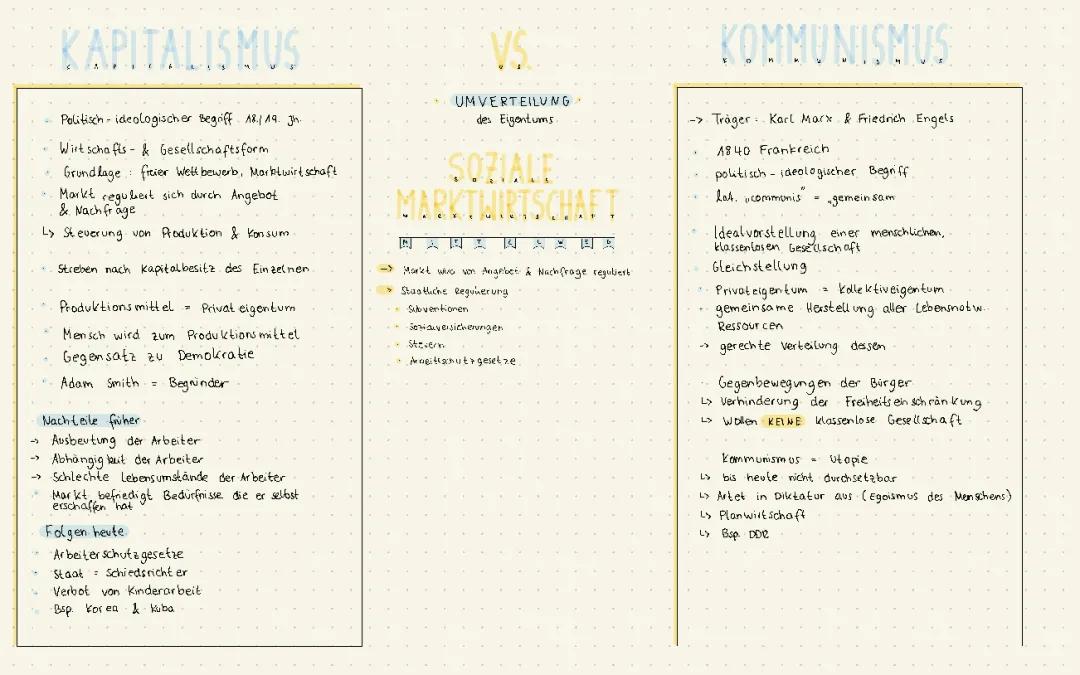 KAPITALISMUS
KAPITALISMUS
Politisch-ideologischer Begriff 18./19. Jh.
Wirtschafts- & Gesellschaftsform
Grundlage: freier Wettbewerb, Marktwirtschaft
Markt reguliert sich durch Angebot
& Nachfrage
↳ Steuerung von Produktion & Konsum
Streben nach Kapitalbesitz des Einzelnen
Produktionsmittel = Privateigentum
Mensch wird zum Produktionsmittel
Gegensatz zu Demokratie
Adam Smith = Begründer
Nachteile früher
-> Ausbeutung der Arbeiter
-> Abhängigkeit der Arbeiter
-> Schlechte Lebensumstände der Arbeiter
Markt befriedigt Bedürfnisse die er selbst
erschaffen hat
Folgen heute
Arbeiterschutzgesetze
Staat = Schiedsrichter
Verbot von Kinderarbeit
Bsp. Korea & Kuba
VS.
VS
UMVERTEILUNG
des Eigentums
SOZIALE
SOZIALE
MARKTWIRTSCHAFT
MARKTWIRTSCHAFT
MITTELWEG
-> Markt wird von Angebot & Nachfrage reguliert
-> Staatliche Regulierung
Subventionen
Sozialversicherungen
Steuern
Arbeitsschutzgesetze
KOMMUNISMUS
KOMMUNISMUS
-> Träger: Karl Marx & Friedrich Engels
1840 Frankreich
politisch-ideologischer Begriff
lat. „communis" = „gemeinsam
Idealvorstellung einer menschlichen,
klassenlosen Gesellschaft
Gleichstellung
Privateigentum = Kollektiveigentum
gemeinsame Herstellung aller Lebensnotw.
Ressourcen
-> gerechte Verteilung dessen
Gegenbewegungen der Bürger
↳ Verhinderung der Freiheitseinschränkung
↳ Wollen KEINE klassenlose Gesellschaft
Kommunismus = Utopie
↳ bis heute nicht durchsetzbar
↳ Artet in Diktatur aus (Egoismus des Menschens)
↳ Planwirtschaft
↳ Bsp. DDR